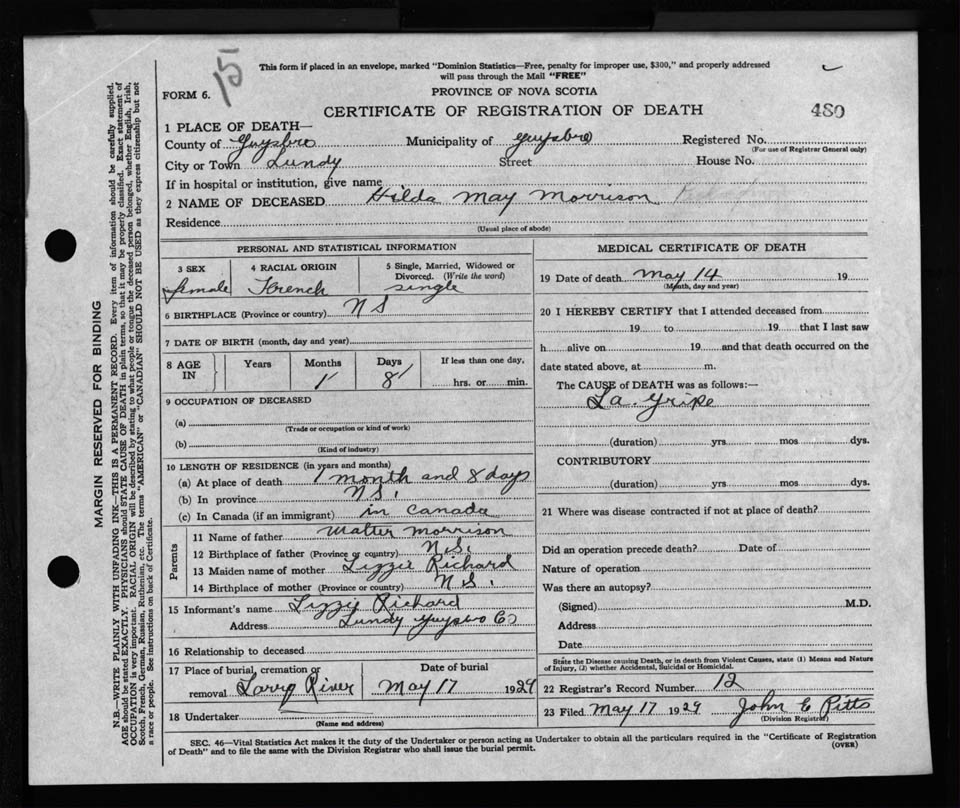 15
This form if placed in an envelope, marked "Dominion Statistics—Free, penalty for improper use, $300," and properly addressed
will pass through the Mail "FREE"
FORM 6.
PROVINCE OF NOVA SCOTIA
CERTIFICATE OF REGISTRATION OF DEATH
480
1 PLACE OF DEATH—
County of Guysbro Municipality of Guysbro Registered No.
(For use of Registrar General only)
City or Town Lundy Street House No.
If in hospital or institution, give name
2 NAME OF DECEASED Hilda May Morrison
Residence
(Usual place of abode)
PERSONAL AND STATISTICAL INFORMATION
3 SEX
female
4 RACIAL ORIGIN
French
5 Single, Married, Widowed or
Divorced. (Write the word)
single
6 BIRTHPLACE (Province or country) N S
7 DATE OF BIRTH (month, day and year)
8 AGE IN
Years
Months
1
Days
8
If less than one day,
hrs. or min.
9 OCCUPATION OF DECEASED
(a)
(Trade or occupation or kind of work)
(b)
(Kind of industry)
10 LENGTH OF RESIDENCE (in years and months)
(a) At place of death 1 month and 8 days
(b) In province N S.
(c) In Canada (if an immigrant) in Canada
Parents
11 Name of father Walter Morrison
12 Birthplace of father (Province or country) N.S.
13 Maiden name of mother Lizzie Richard
14 Birthplace of mother (Province or country) N.S.
15 Informant's name Lizzie Richard
Address Lundy Guysbro Co
16 Relationship to deceased
17 Place of burial, cremation or
removal Larry's River
Date of burial
May 17 1929
18 Undertaker
(Name and address)
MEDICAL CERTIFICATE OF DEATH
19 Date of death May 14 19
(Month, day and year)
20 I HEREBY CERTIFY that I attended deceased from
19 to 19 that I last saw
h alive on 19 and that death occurred on the
date stated above, at m.
The CAUSE of DEATH was as follows:—
La Gripe
(duration) yrs mos dys.
CONTRIBUTORY
(duration) yrs mos dys.
21 Where was disease contracted if not at place of death?
Did an operation precede death? Date of
Nature of operation
Was there an autopsy?
(Signed) M.D.
Address
Date
State the Disease causing Death, or in death from Violent Causes, state (1) Means and Nature
of Injury, (2) whether Accidental, Suicidal or Homicidal.
22 Registrar's Record Number 12
23 Filed May 17 1929 John E Pitts
(Division Registrar)
SEC. 46—Vital Statistics Act makes it the duty of the Undertaker or person acting as Undertaker to obtain all the particulars required in the "Certificate of Registration
of Death" and to file the same with the Division Registrar who shall issue the burial permit.
(OVER)
MARGIN RESERVED FOR BINDING
N.B.—WRITE PLAINLY WITH UNFADING INK—THIS IS A PERMANENT RECORD. Every item of information should be carefully supplied.
AGE should be stated EXACTLY. PHYSICIANS should STATE CAUSE OF DEATH in plain terms, so that it may be properly classified. Exact statement of
OCCUPATION is very important. RACIAL ORIGIN will be described by stating to what people or tongue the deceased person belonged, whether English, Irish,
Scotch, French, German, Russian, Ruthenian, etc. The terms "AMERICAN" or "CANADIAN" SHOULD NOT BE USED as they express citizenship but not
a race or people. See instructions on back of Certificate.